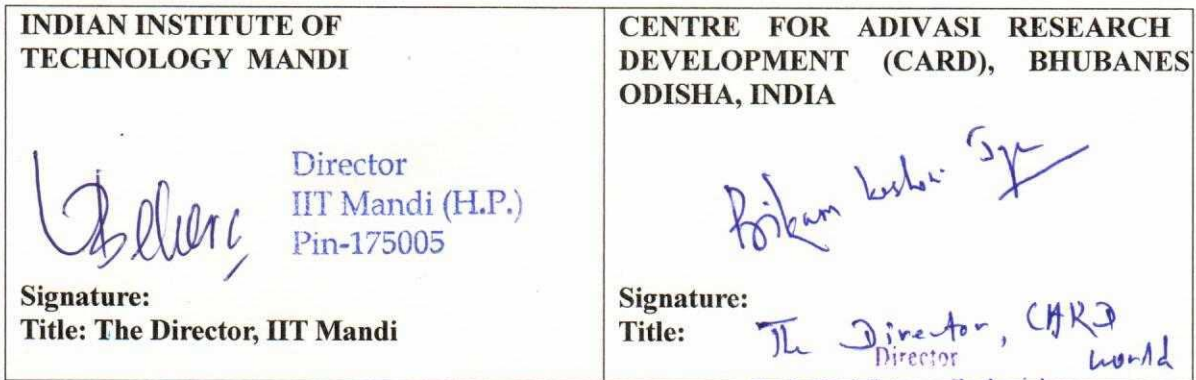 INDIAN INSTITUTE OF
TECHNOLOGY MANDI
Director
IIT Mandi (H.P.)
Pin-175005
Signature:
Title: The Director, IIT Mandi
CENTRE FOR ADIVASI RESEARCH
DEVELOPMENT (CARD), BHUBANES
ODISHA, INDIA
Signature:
Title: The Director, CARD
Director
world